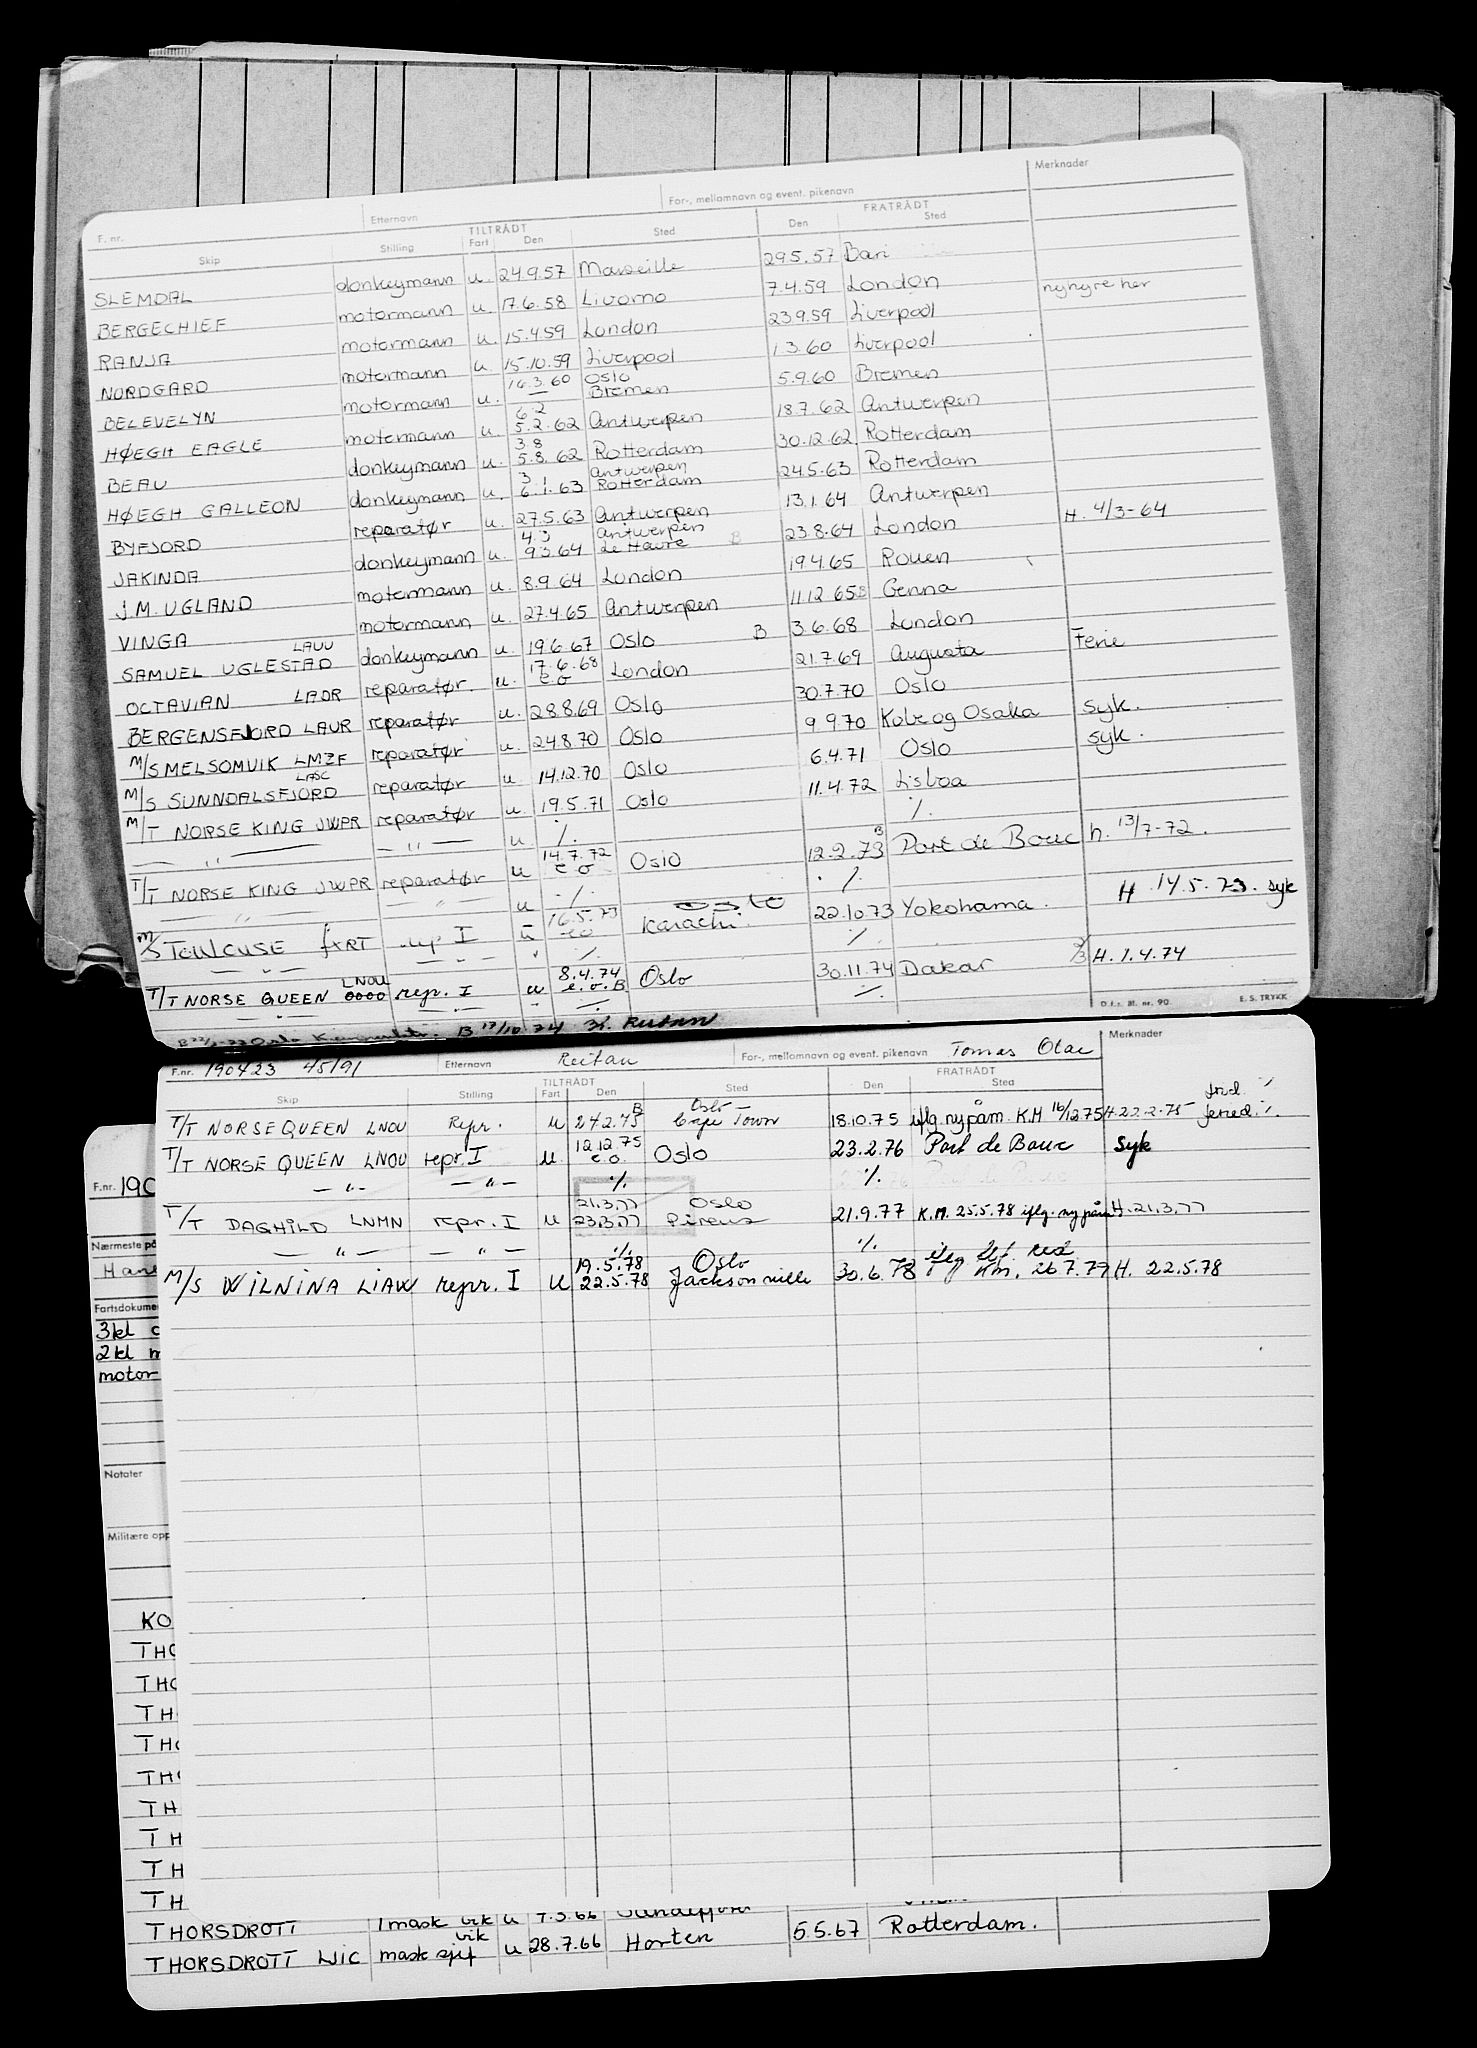 F. nr. Etternavn For-, mellomnavn og event. pikenavn Merknader
TILTRÅDT FRATRÅDT
Skip Stilling Fart Den Sted Den Sted
SLEMDAL donkeymann u. 24.9.57 Marseille 29.5.57 Bari
BERGECHIEF motormann u. 17.6.58 Livorno 7.4.59 London nyhyre her
RANJA motormann u. 15.4.59 London 23.9.59 Liverpool
NORDGARD motormann u. 15.10.59 Liverpool 1.3.60 Liverpool
16.3.60 Oslo
BELEVELYN motormann u. — Bremen 5.9.60 Bremen
6.2
HØEGH EAGLE motormann u. 5.2.62 Antwerpen 18.7.62 Antwerpen
3.8
BEAU donkeymann u. 5.8.62 Rotterdam 30.12.62 Rotterdam
3.1 Antwerpen
HØEGH GALLEON donkeymann u. 6.1.63 Rotterdam 24.5.63 Rotterdam
BYFJORD reparatør u. 27.5.63 Antwerpen 13.1.64 Antwerpen
4.3 Antwerpen
JAKINDA donkeymann u. 9.3.64 Le Havre B 23.8.64 London H. 4/3-64
J.M. UGLAND motormann u. 8.9.64 London 19.4.65 Rouen
VINGA motormann u. 27.4.65 Antwerpen 11.12.65 Genna
LAUU
SAMUEL UGLESTAD donkeymann u. 19.6.67 Oslo B 3.6.68 London
17.6.68
OCTAVIAN LADR reparatør. u. e.o London 21.7.69 Augusta Ferie
BERGENSFJORD LAUR reparatør u. 28.8.69 Oslo 30.7.70 Oslo
M/S MELSOMVIK LMZF reparatør u. 24.8.70 Oslo 9.9.70 Kobe og Osaka syk.
LASC
M/S SUNNDALSFJORD reparatør u 14.12.70 Oslo 6.4.71 Oslo syk.
M/T NORSE KING JWPR reparatør u. 19.5.71 Oslo 11.4.72 Lisboa
— " — — " — u ./. ./.
14.7.72 B
T/T NORSE KING JWPR reparatør u e.o Oslo 12.2.73 Port de Bouc h. 13/7-72.
" " u ./. ./.
16.5.73 Oslo
M/S TOULOUSE rep I u e.o Karachi. 22.10.73 Yokohama. H. 14.5.73. syk
— " — — " — " ./. ./.
LNOU 8.4.74
T/T NORSE QUEEN rep. I u e.o. B Oslo 30.11.74 Dakar H. 1.4.74
— " — — " — " ./. ./.
D.f.s. Bl. nr. 90. E. S. TRYKK
B 17/10.74
F.nr. 190423 45191 Etternavn Reitan For-, mellomnavn og event. pikenavn Tomas Olac Merknader
TILTRÅDT FRATRÅDT
Skip Stilling Fart Den Sted Den Sted
B Oslo —
T/T NORSE QUEEN LNOU Repr. u 24.2.75 Cape Town 18.10.75 iflg. ny påm. K.M 16/12.75 H. 22.2.75
12.12.75
T/T NORSE QUEEN LNOU repr. I u e.o. Oslo 23.2.76 Port de Bouc syk
— " — — " — ./. ./.
21.3.77 Oslo
T/T DAGHILD LNMN repr. I u 23.3.77 Pireus 21.9.77 K.M. 25.5.78 iflg. ny påm H. 21.3.77
— " — — " — ./. ./.
19.5.78 Oslo
M/S WILNINA LIAW repr. I u 22.5.78 Jacksonville 30.6.78 H. 22.5.78
F.nr. 190
Nærmeste på
Hans
Fartsdokume
3kl
2kl m
motor
Notater
Militære opp
KO
THO
THO
TH
THO
TH
TH
TH
TH
TH
THORSDROTT 1 mask vik u 7.3.66 Sandefjord
THORSDROTT LJIC mask sjef vik u 28.7.66 Horten 5.5.67 Rotterdam.